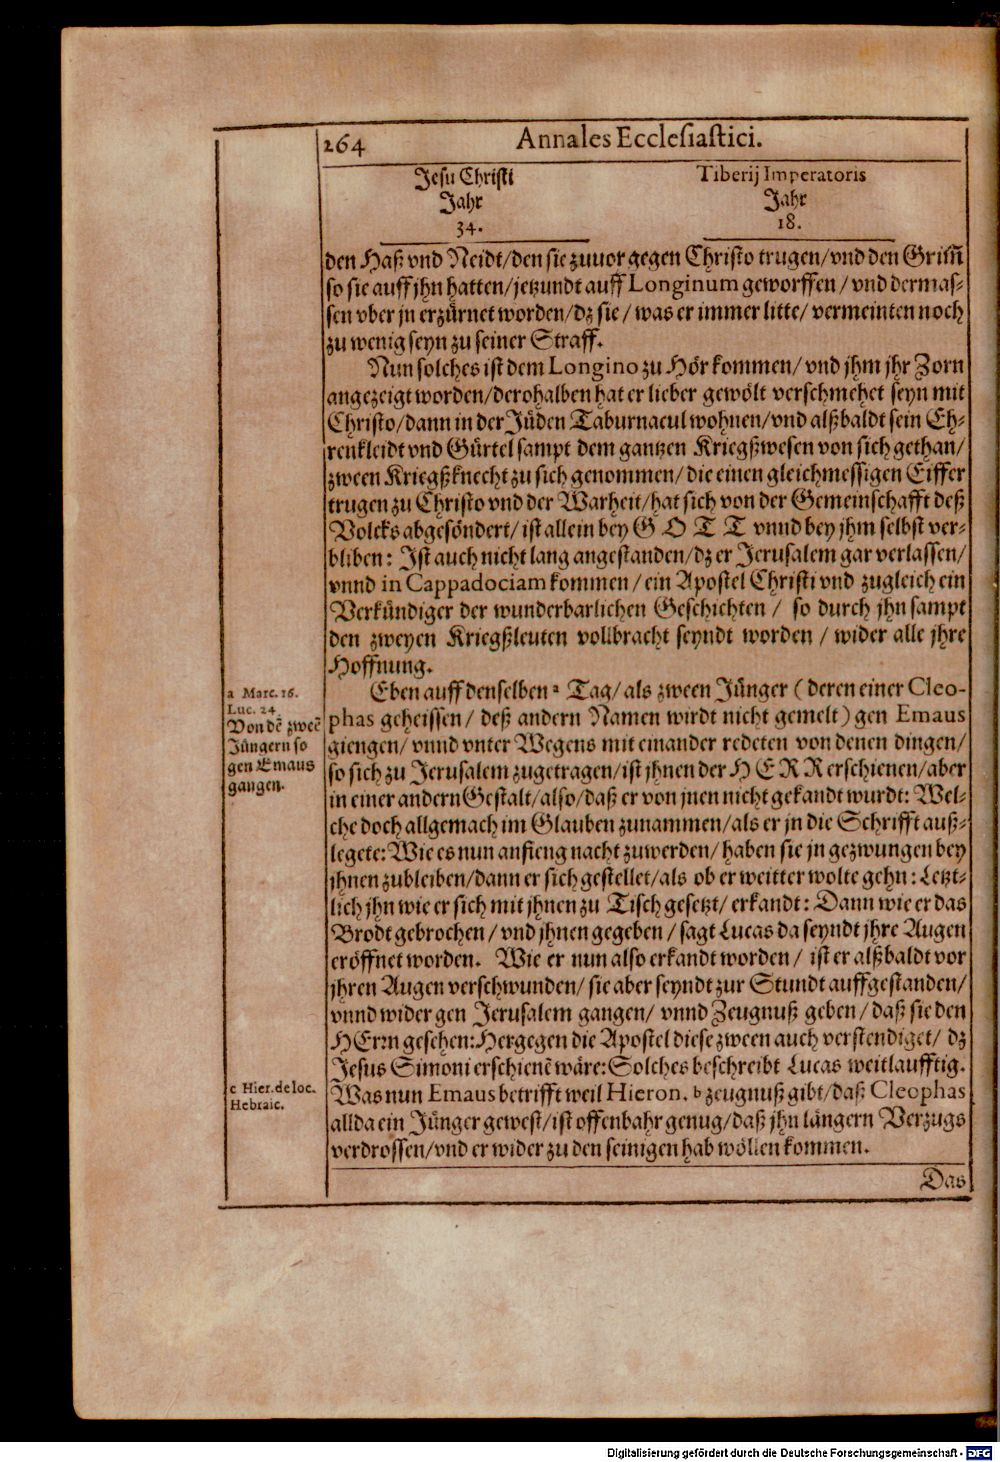 264 Annales Ecclesiastici.
Jesu Christi
Jahr
34.
Tiberij Imperatoris
Jahr
18.
den Haß vnd Neidt/den sie zuuor gegen Christo trugen/vnd den Grim̃
so sie auff jhn hatten/jetzundt auff Longinum geworffen/vnd dermas-
sen vber jn erzürnet worden/dz sie/was er immer litte/vermeinten noch
zu wenig seyn zu seiner Straff.
Nun solches ist dem Longino zu Hör kommen/vnd jhm jhr Zorn
angezeigt worden/derohalben hat er lieber gewölt verschmehet seyn mit
Christo/dann in der Jüden Taburnacul wohnen/vnd alßbaldt sein Eh-
renkleidt vnd Gürtel sampt dem gantzen Kriegßwesen von sich gethan/
zween Kriegßknecht zu sich genommen/die einen gleichmessigen Eiffer
trugen zu Christo vnd der Warheit/hat sich von der Gemeinschafft deß
Volcks abgesöndert/ist allein bey G O T T vnnd bey jhm selbst ver-
bliben: Ist auch nicht lang angestanden/dz er Jerusalem gar verlassen/
vnnd in Cappadociam kommen/ein Apostel Christi vnd zugleich ein
Verkündiger der wunderbarlichen Geschichten/ so durch jhn sampt
den zweyen Kriegßleuten vollbracht seyndt worden/wider alle jhre
Hoffnung.
Eben auff denselben a Tag/als zween Jünger (deren einer Cleo-
phas geheissen/ deß andern Namen wirdt nicht gemelt) gen Emaus
giengen/vnnd vnter Wegens mit einander redeten von denen dingen/
so sich zu Jerusalem zugetragen/ist jhnen der H E R R erschienen/aber
in einer andern Gestalt/also/daß er von jnen nicht gekandt wurdt: Wel-
che doch allgemach im Glauben zunammen/als er jn die Schrifft auß-
legete: Wie es nun anfieng nacht zuwerden/haben sie jn gezwungen bey
jhnen zubleiben/dann er sich gestellet/als ob er weitter wolte gehn: Letzt-
lich jhn wie er sich mit jhnen zu Tisch gesetzt/erkandt: Dann wie er das
Brodt gebrochen/vnd jhnen gegeben/sagt Lucas da seyndt jhre Augen
eröffnet worden. Wie er nun also erkandt worden/ ist er alßbaldt vor
jhren Augen verschwunden/sie aber seyndt zur Stundt auffgestanden/
vnnd wider gen Jerusalem gangen/vnnd Zeugnuß geben/daß sie den
HErrn gesehen: Hergegen die Apostel diese zween auch verstendiget/ dz
Jesus Simoni erschienẽ wäre: Solches beschreibt Lucas weitlaufftig.
Was nun Emaus betrifft weil Hieron. b zeugnuß gibt/daß Cleophas
allda ein Jünger gewest/ist offenbahr genug/daß jhn längern Verzugs
verdrossen/vnd er wider zu den seinigen hab wöllen kommen.
Das
a Marc. 16.
Luc. 24.
Von dẽ zweẽ
Jüngern so
gen Emaus
gangen.
c Hier. de loc.
Hebraic.
Digitalisierung gefördert durch die Deutsche Forschungsgemeinschaft - DFG